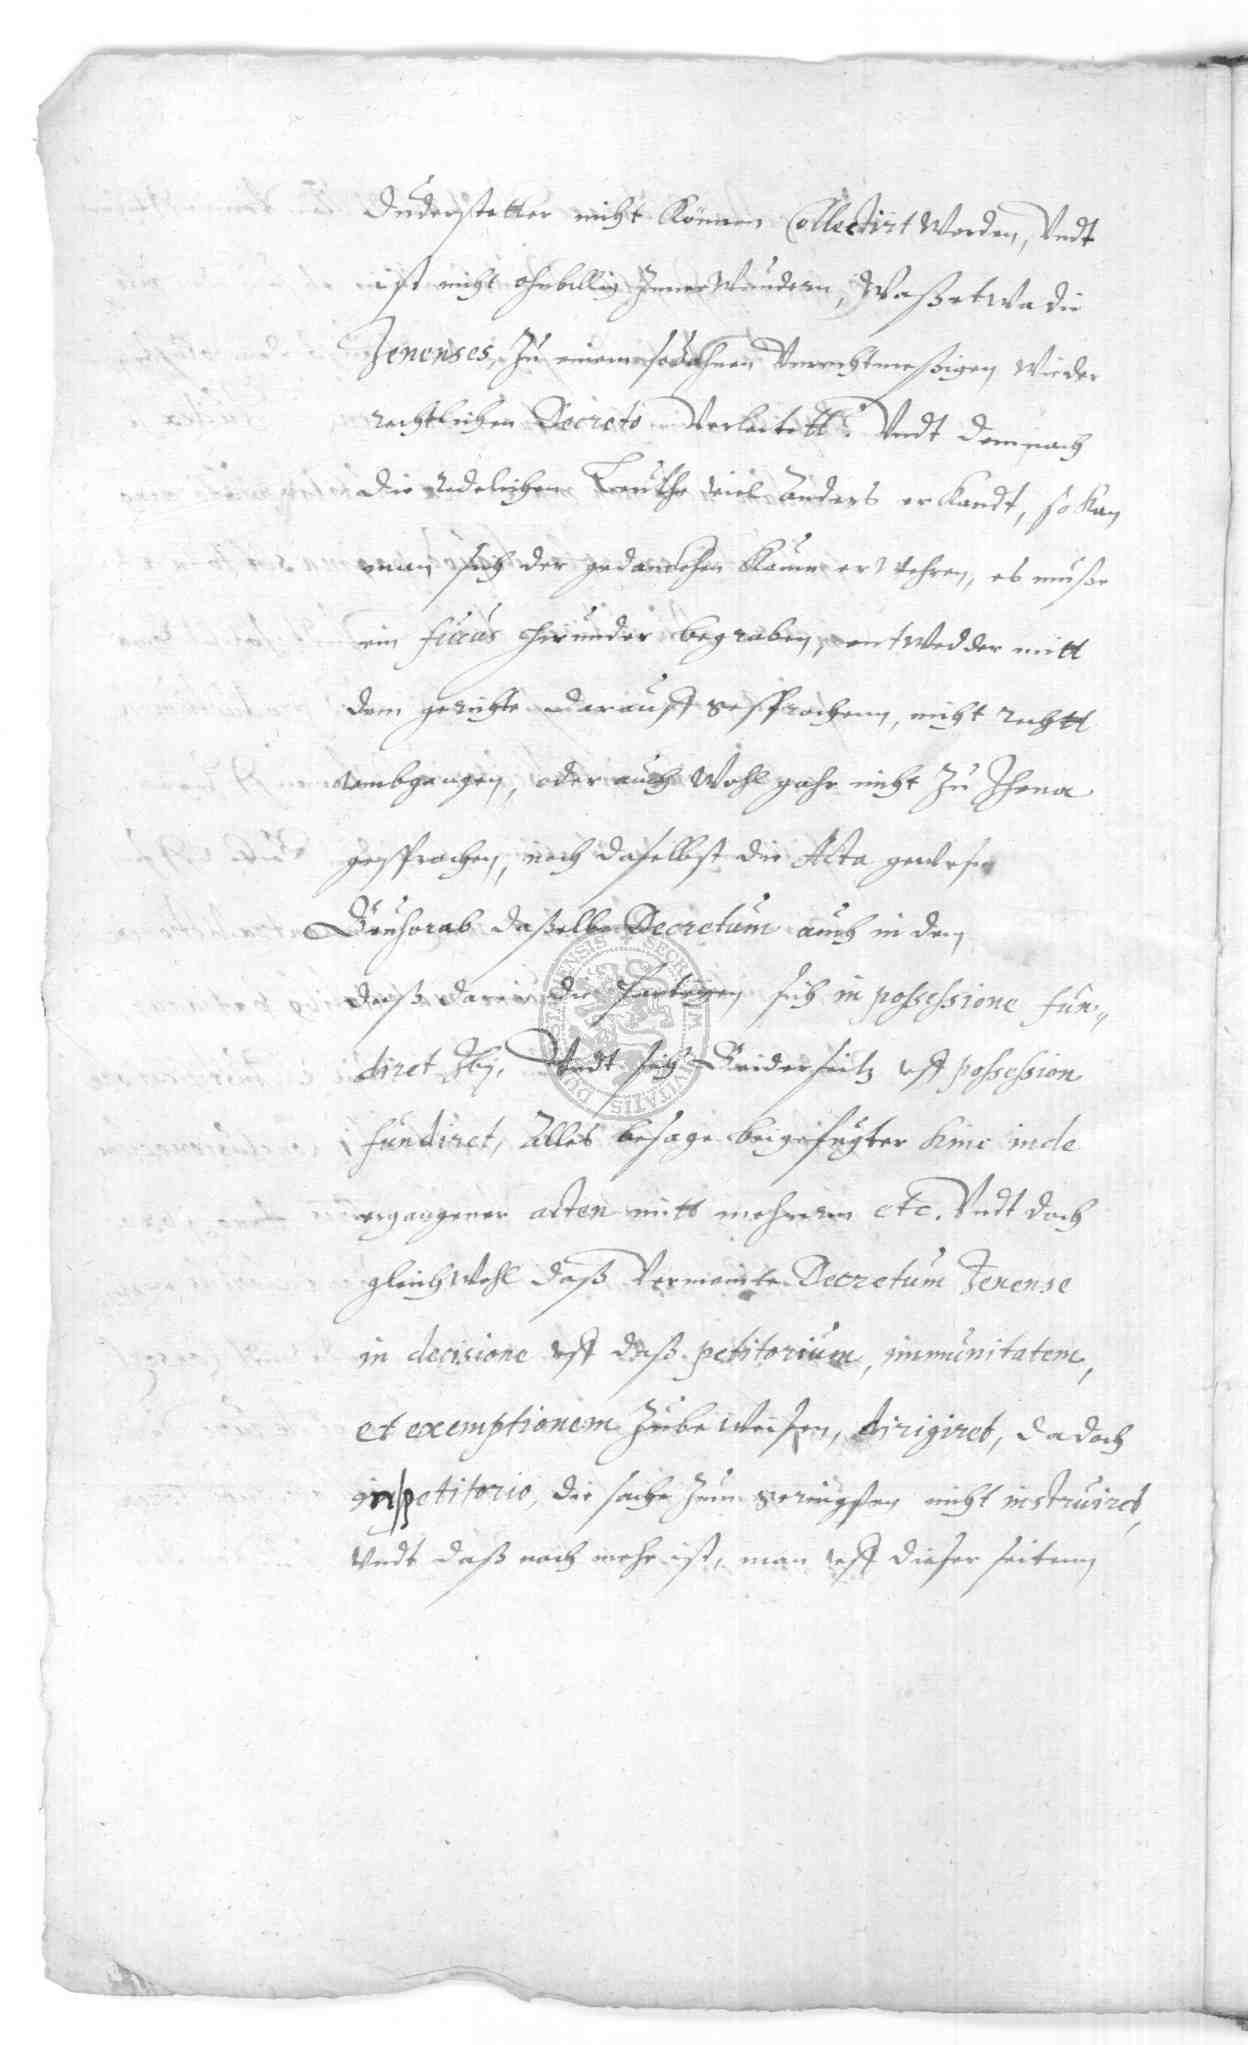 Duderstetter nicht können Collectirt Werden, Vndt
ist nicht ohnbillig Zuver Wundern, Waß etwa die
Jenenses, Zu einem sothanen Vnrechtmeßigen Wieder
rechtlichen Decreto Verleitett. Vndt demnach
die redelichen Leuthe viel Anders erKandt, so Kan
man sich der gedancken Kaum erwehren, es muße
ein fucus hirunder begraben, entWedder mitt
dem gerichte darauff gesprochenn, nicht rechtt
vmbgangen, oder auch Wohl gahr nicht Zu Jhena
gesprochen, noch daselbst die Acta gewesen
daßelbe Decretum auch in dem
daß darin die Parteyen sich in possessione fun-
diret Vndt sich Beiderseitz vff possession
fundiret, Alles besage beigefugter hinc inde
ergangener acten mitt mehrerm etc. Vndt doch
gleichWohl daß Vermeinte Decretum Jenense
in decisione vff daß petitorium, immunitatem,
et exemptionem ZubeWeisen, dirigiret, da doch
in petitorio, die sache Zum geringsten nicht instruiret,
Vndt daß noch mehr ist, man vff dieser seitenn
SECRETUM CIVITATIS